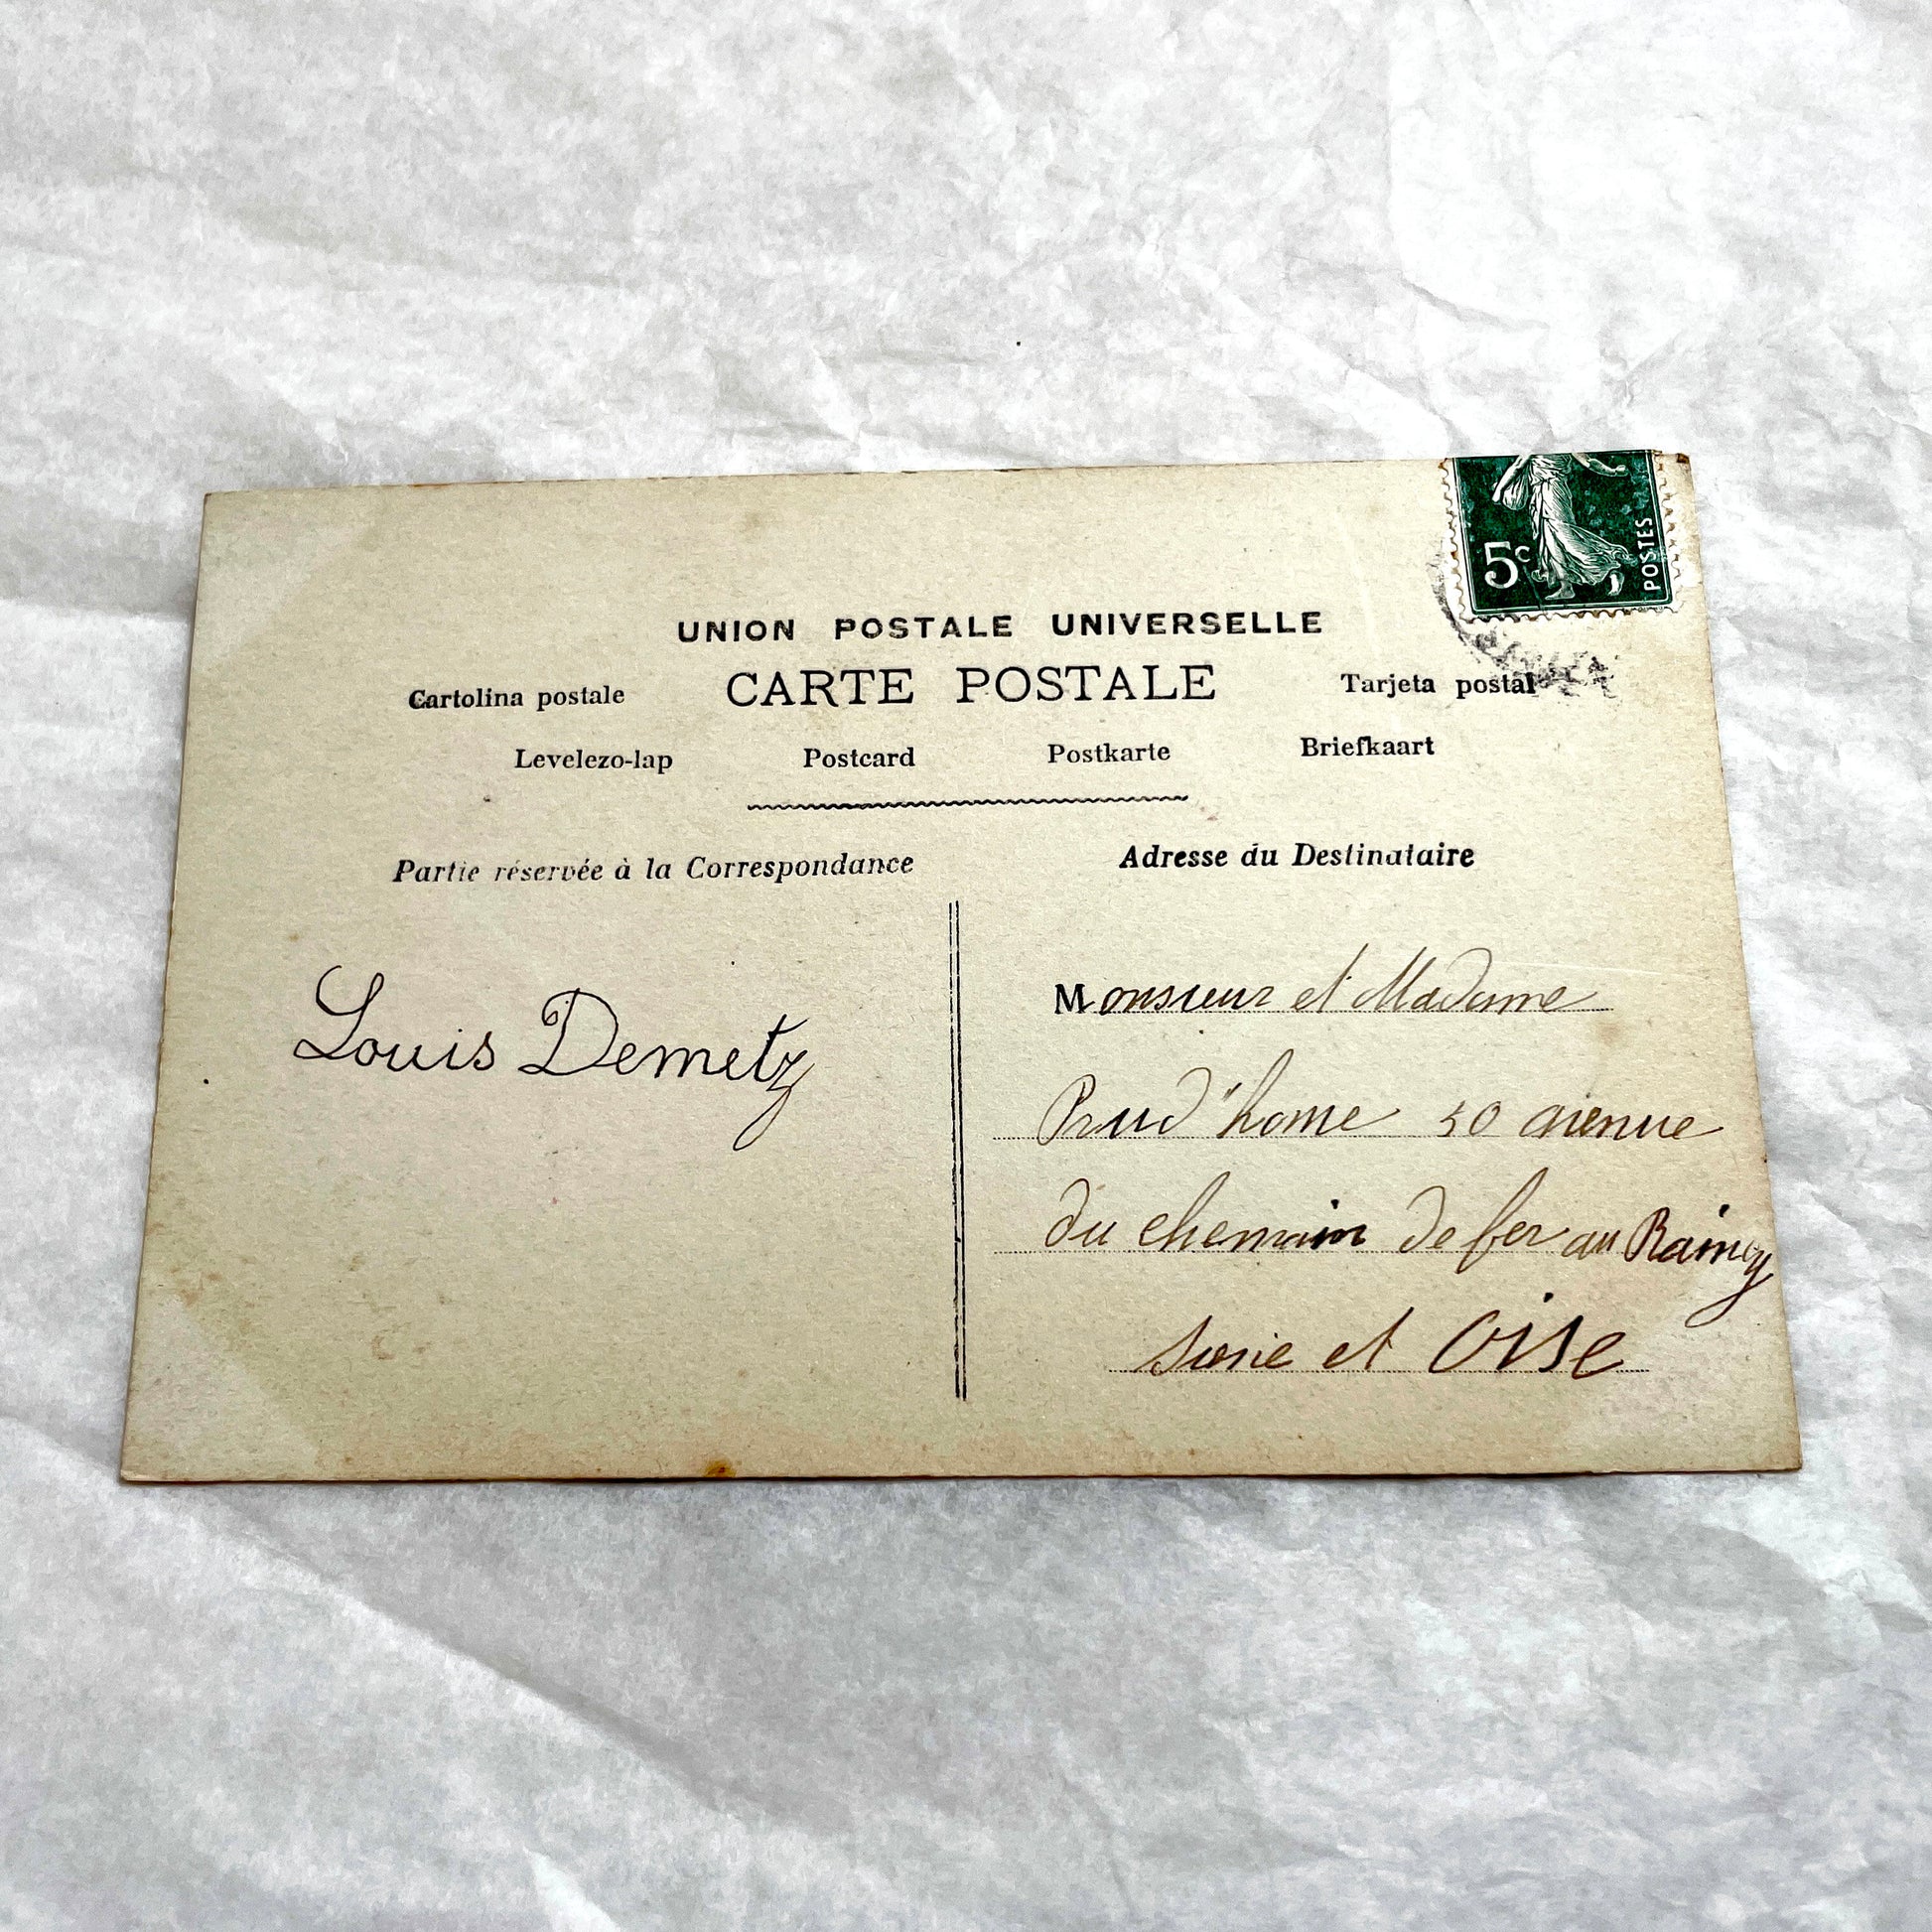 5c
POSTES
UNION POSTALE UNIVERSELLE
Cartolina postale CARTE POSTALE Tarjeta postal
Levelezo-lap Postcard Postkarte Briefkaart
Partie réservée à la Correspondance
Adresse du Destinataire
Louis Demetz
Monsieur et Madame
Prud'home 50 avenue
du chemin de fer au Raincy
et Oise